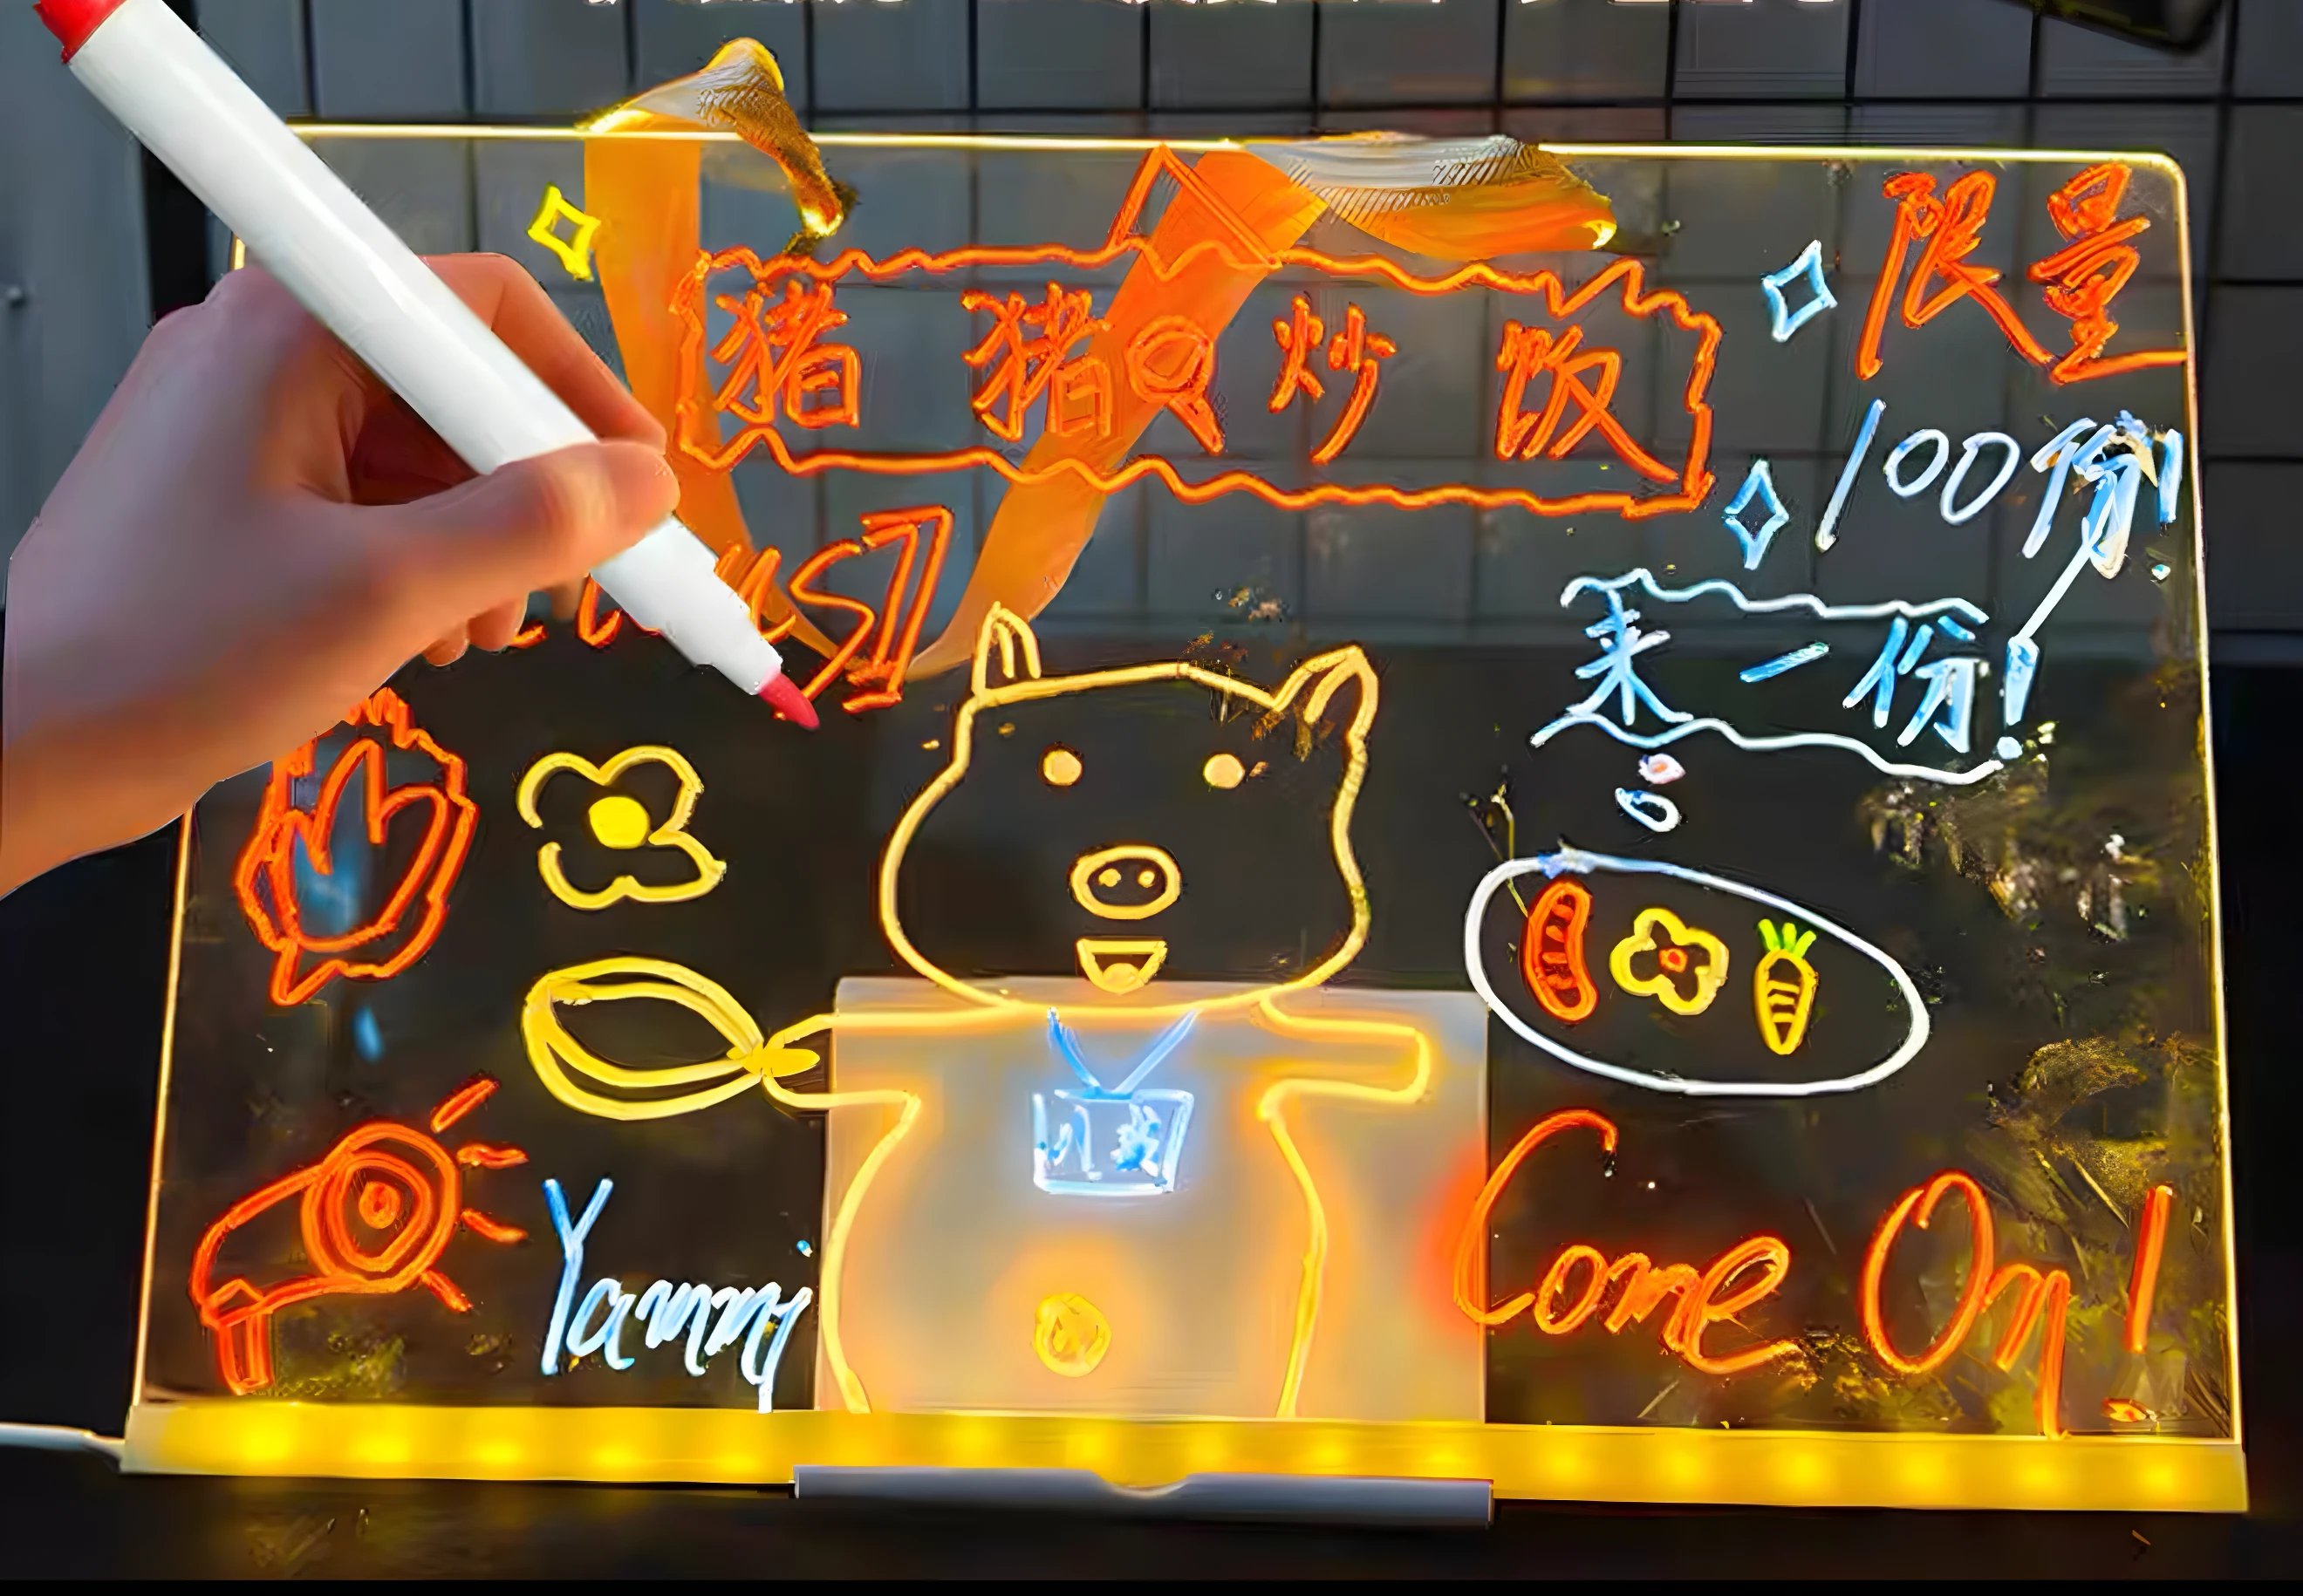 猪猪Q炒饭
限量
100份!
来一份!
Yammy
Come On!